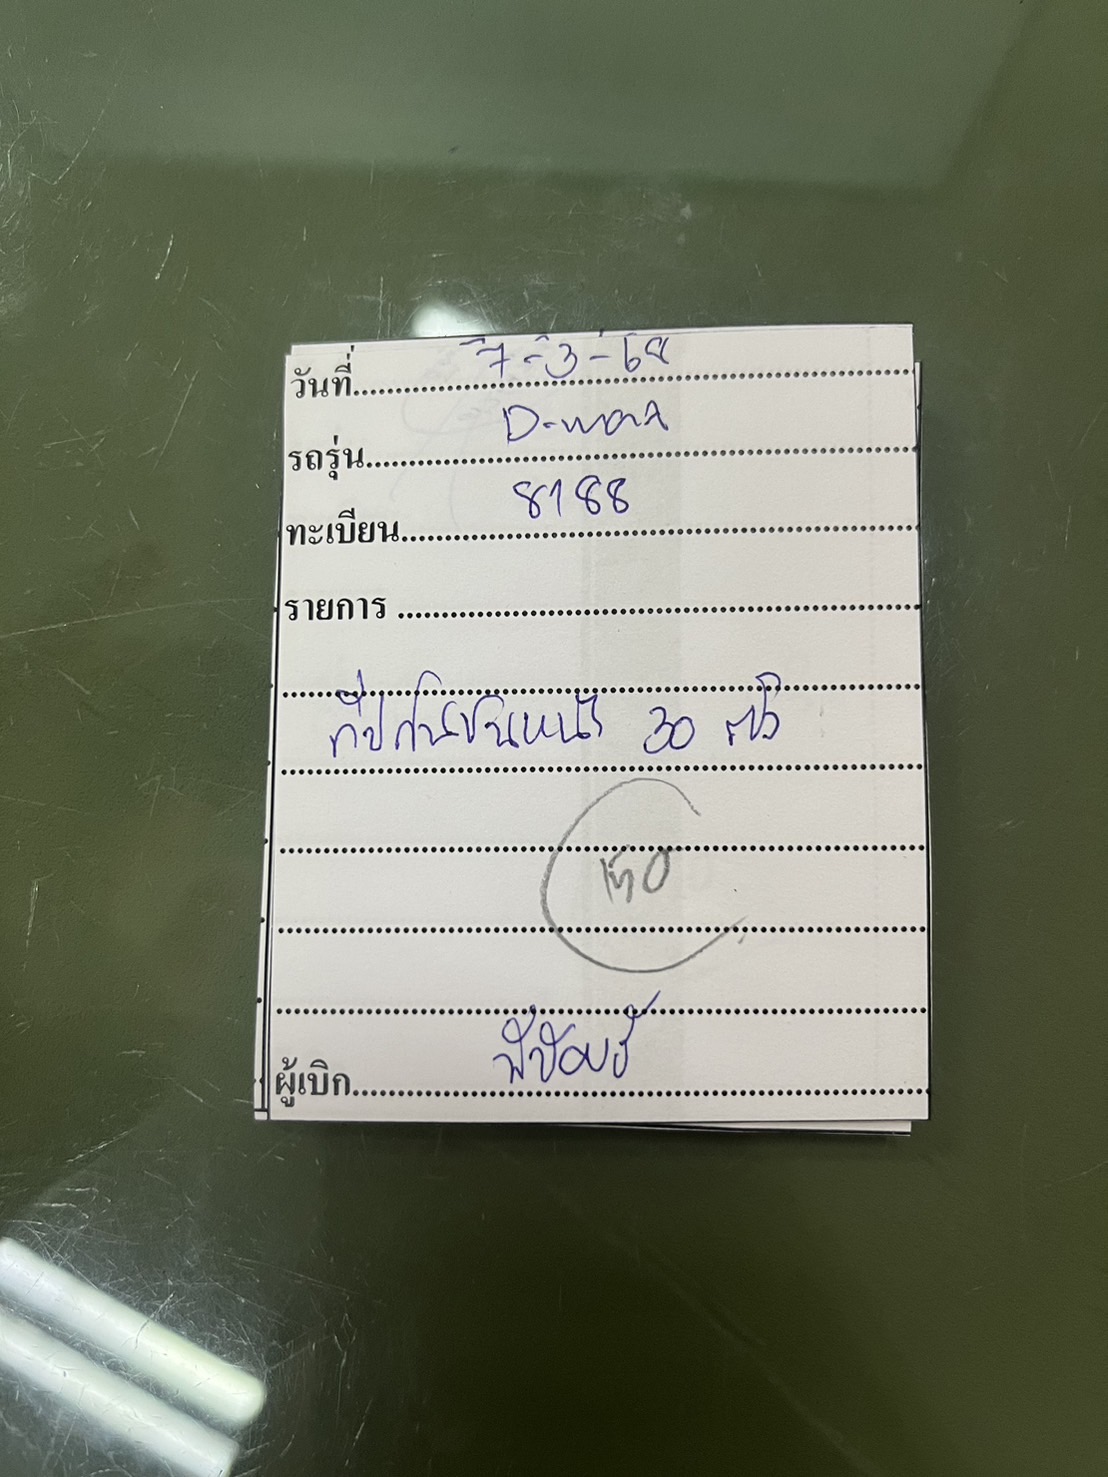 วันที่ 7-3-68
รถรุ่น D-max
ทะเบียน 8188
รายการ
กิ๊ปกันชนหน้า 30 ตัว
ผู้เบิก